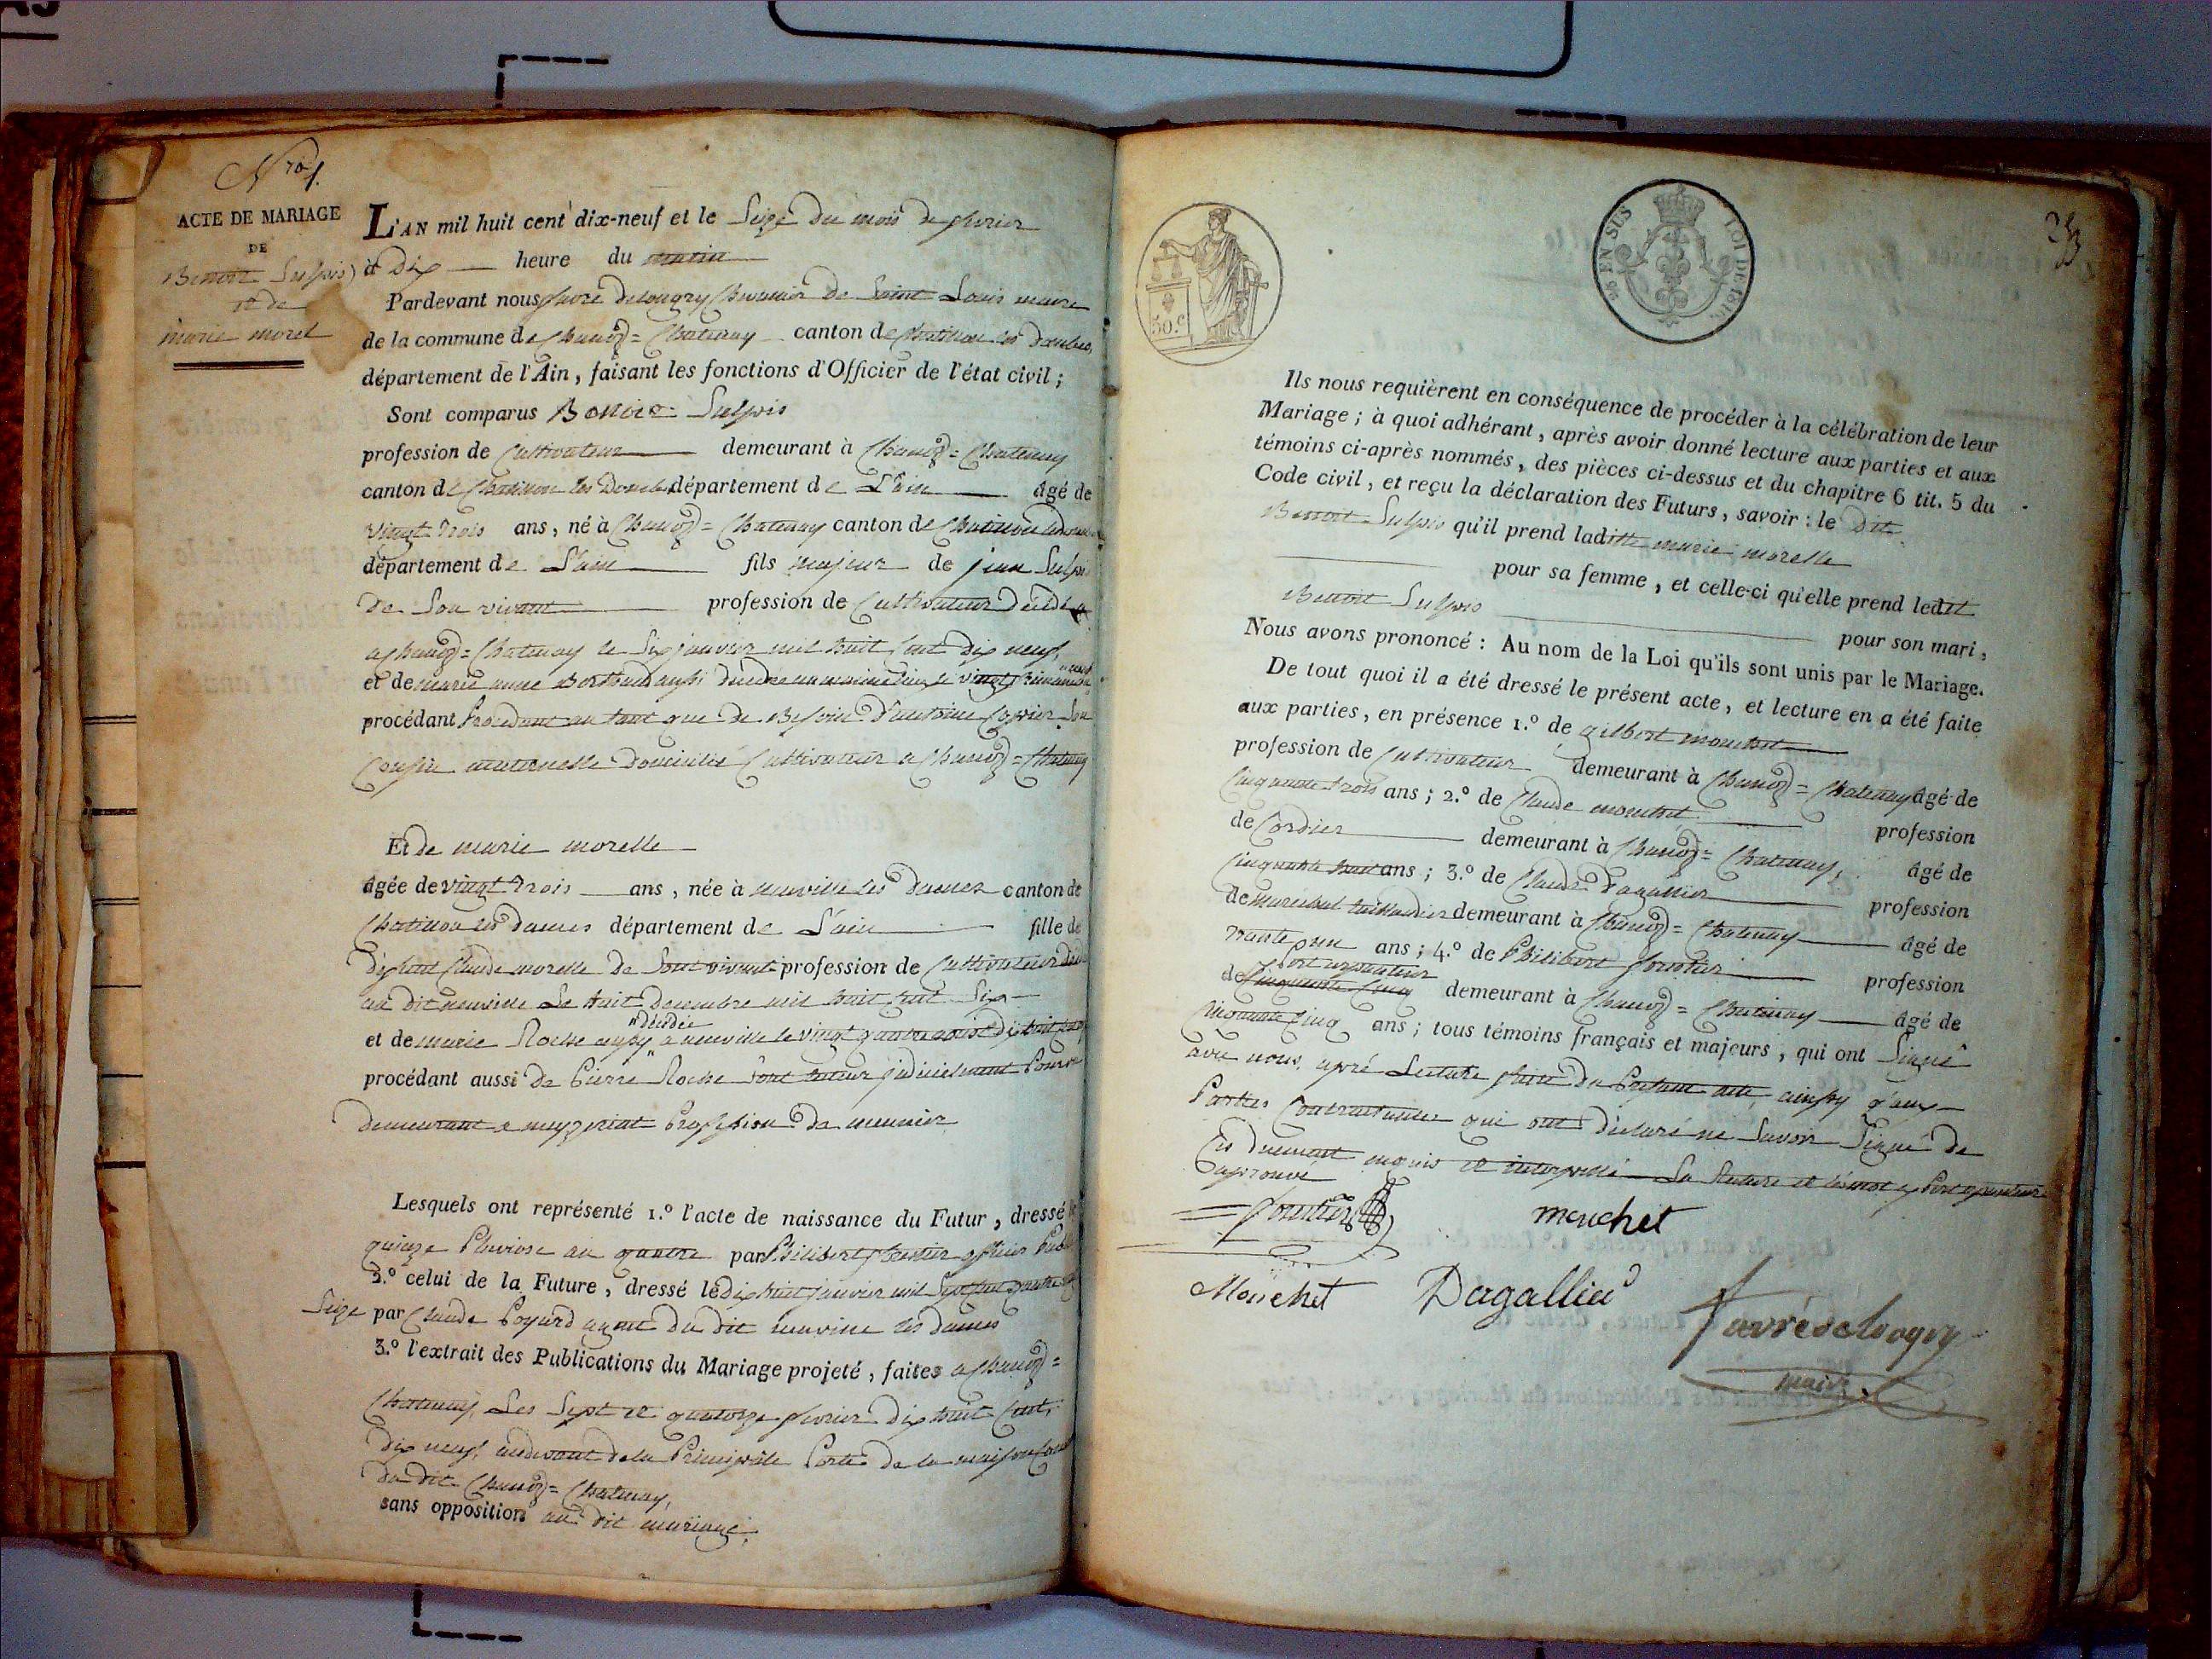 Nro 1.
ACTE DE MARIAGE
DE
Benoit Sulpis
et de
marie morel
L'AN mil huit cent dix-neuf et le Seize du mois de fevrier
à Dix heure du matin
Pardevant nous favre delongry Chevalier de Saint Louis maire
de la commune de Chanoz = Chatenay canton de Chatillon les Dombes,
département de l'Ain, faisant les fonctions d'Officier de l'état civil ;
Sont comparus Benoit Sulpis
profession de Cultivateur demeurant à Chanoz = Chatenay
canton de Chatillon les Dombes département de L'ain âgé de
vingt trois ans, né à Chanoz = Chatenay canton de Chatillon
département de L'ain fils majeur de jean Sulpis
de Son vivant profession de Cultivateur décédé
a Chanoz = Chatenay le Six janvier mil huit Cent dix neuf,
et de marie anne aussi
procédant Procedant en tant que de Besoin Son
Cousin maternelle domicilié Cultivateur a Chanoz = Chatenay
Et de marie morelle
âgée de vingt trois ans, née à neuville les dames canton de
Chatillon les dames département de L'ain fille de
défunt Claude morelle de Sont vivant profession de Cultivateur
au dit neuville Le huit Decembre mil huit Cent Six
et de marie Roche aussy décédée a neuville le vingt quatre
procédant aussi de Pierre Roche Sont tuteur
demeurant a Profession de meunier
Lesquels ont représenté 1.º l'acte de naissance du Futur, dressé
quinze Pluviose an quatre par Philibert officier
2.º celui de la Future, dressé le dix huit janvier mil Sept Cent quatre
Seize par Claude Poyard agent du dit neuville les dames
3.º l'extrait des Publications du Mariage projeté, faites a Chanoz =
Chatenay, Les Sept et quatorze fevrier dix huit Cent,
Dix neuf, audevant de la Principale Porte de la maison
du dit Chanoz = Chatenay,
sans opposition au dit mariage.
50.c
EN SUS
LOI DE 1816
Ils nous requièrent en conséquence de procéder à la célébration de leur
Mariage ; à quoi adhérant, après avoir donné lecture aux parties et aux
témoins ci-après nommés, des pièces ci-dessus et du chapitre 6 tit. 5 du
Code civil, et reçu la déclaration des Futurs, savoir : le Dit
Benoit Sulpis qu'il prend laditte marie morelle
pour sa femme, et celle-ci qu'elle prend ledit
Benoit Sulpis pour son mari,
Nous avons prononcé : Au nom de la Loi qu'ils sont unis par le Mariage.
De tout quoi il a été dressé le présent acte, et lecture en a été faite
aux parties, en présence 1.º de gilbert mouchet
profession de Cultivateur demeurant à Chanoz = Chatenay âgé de
Cinquante trois ans ; 2.º de Claude mouchet profession
de Cordier demeurant à Chanoz = Chatenay, âgé de
Cinquante huit ans ; 3.º de Claude Dagallier profession
de marechal taillandier demeurant à Chanoz = Chatenay âgé de
trante un ans ; 4.º de Philibert profession
de demeurant à Chanoz = Chatenay âgé de
Cinquante Cinq ans ; tous témoins français et majeurs, qui ont Signé
avec nous, apré Lecture faite du Present acte, ainsy
Parties Contractantes qui ont déclaré ne Savoir Signé de
Ce duement requis et interpellé
approuvé
mouchet
Mouchet
Dagallier
maire